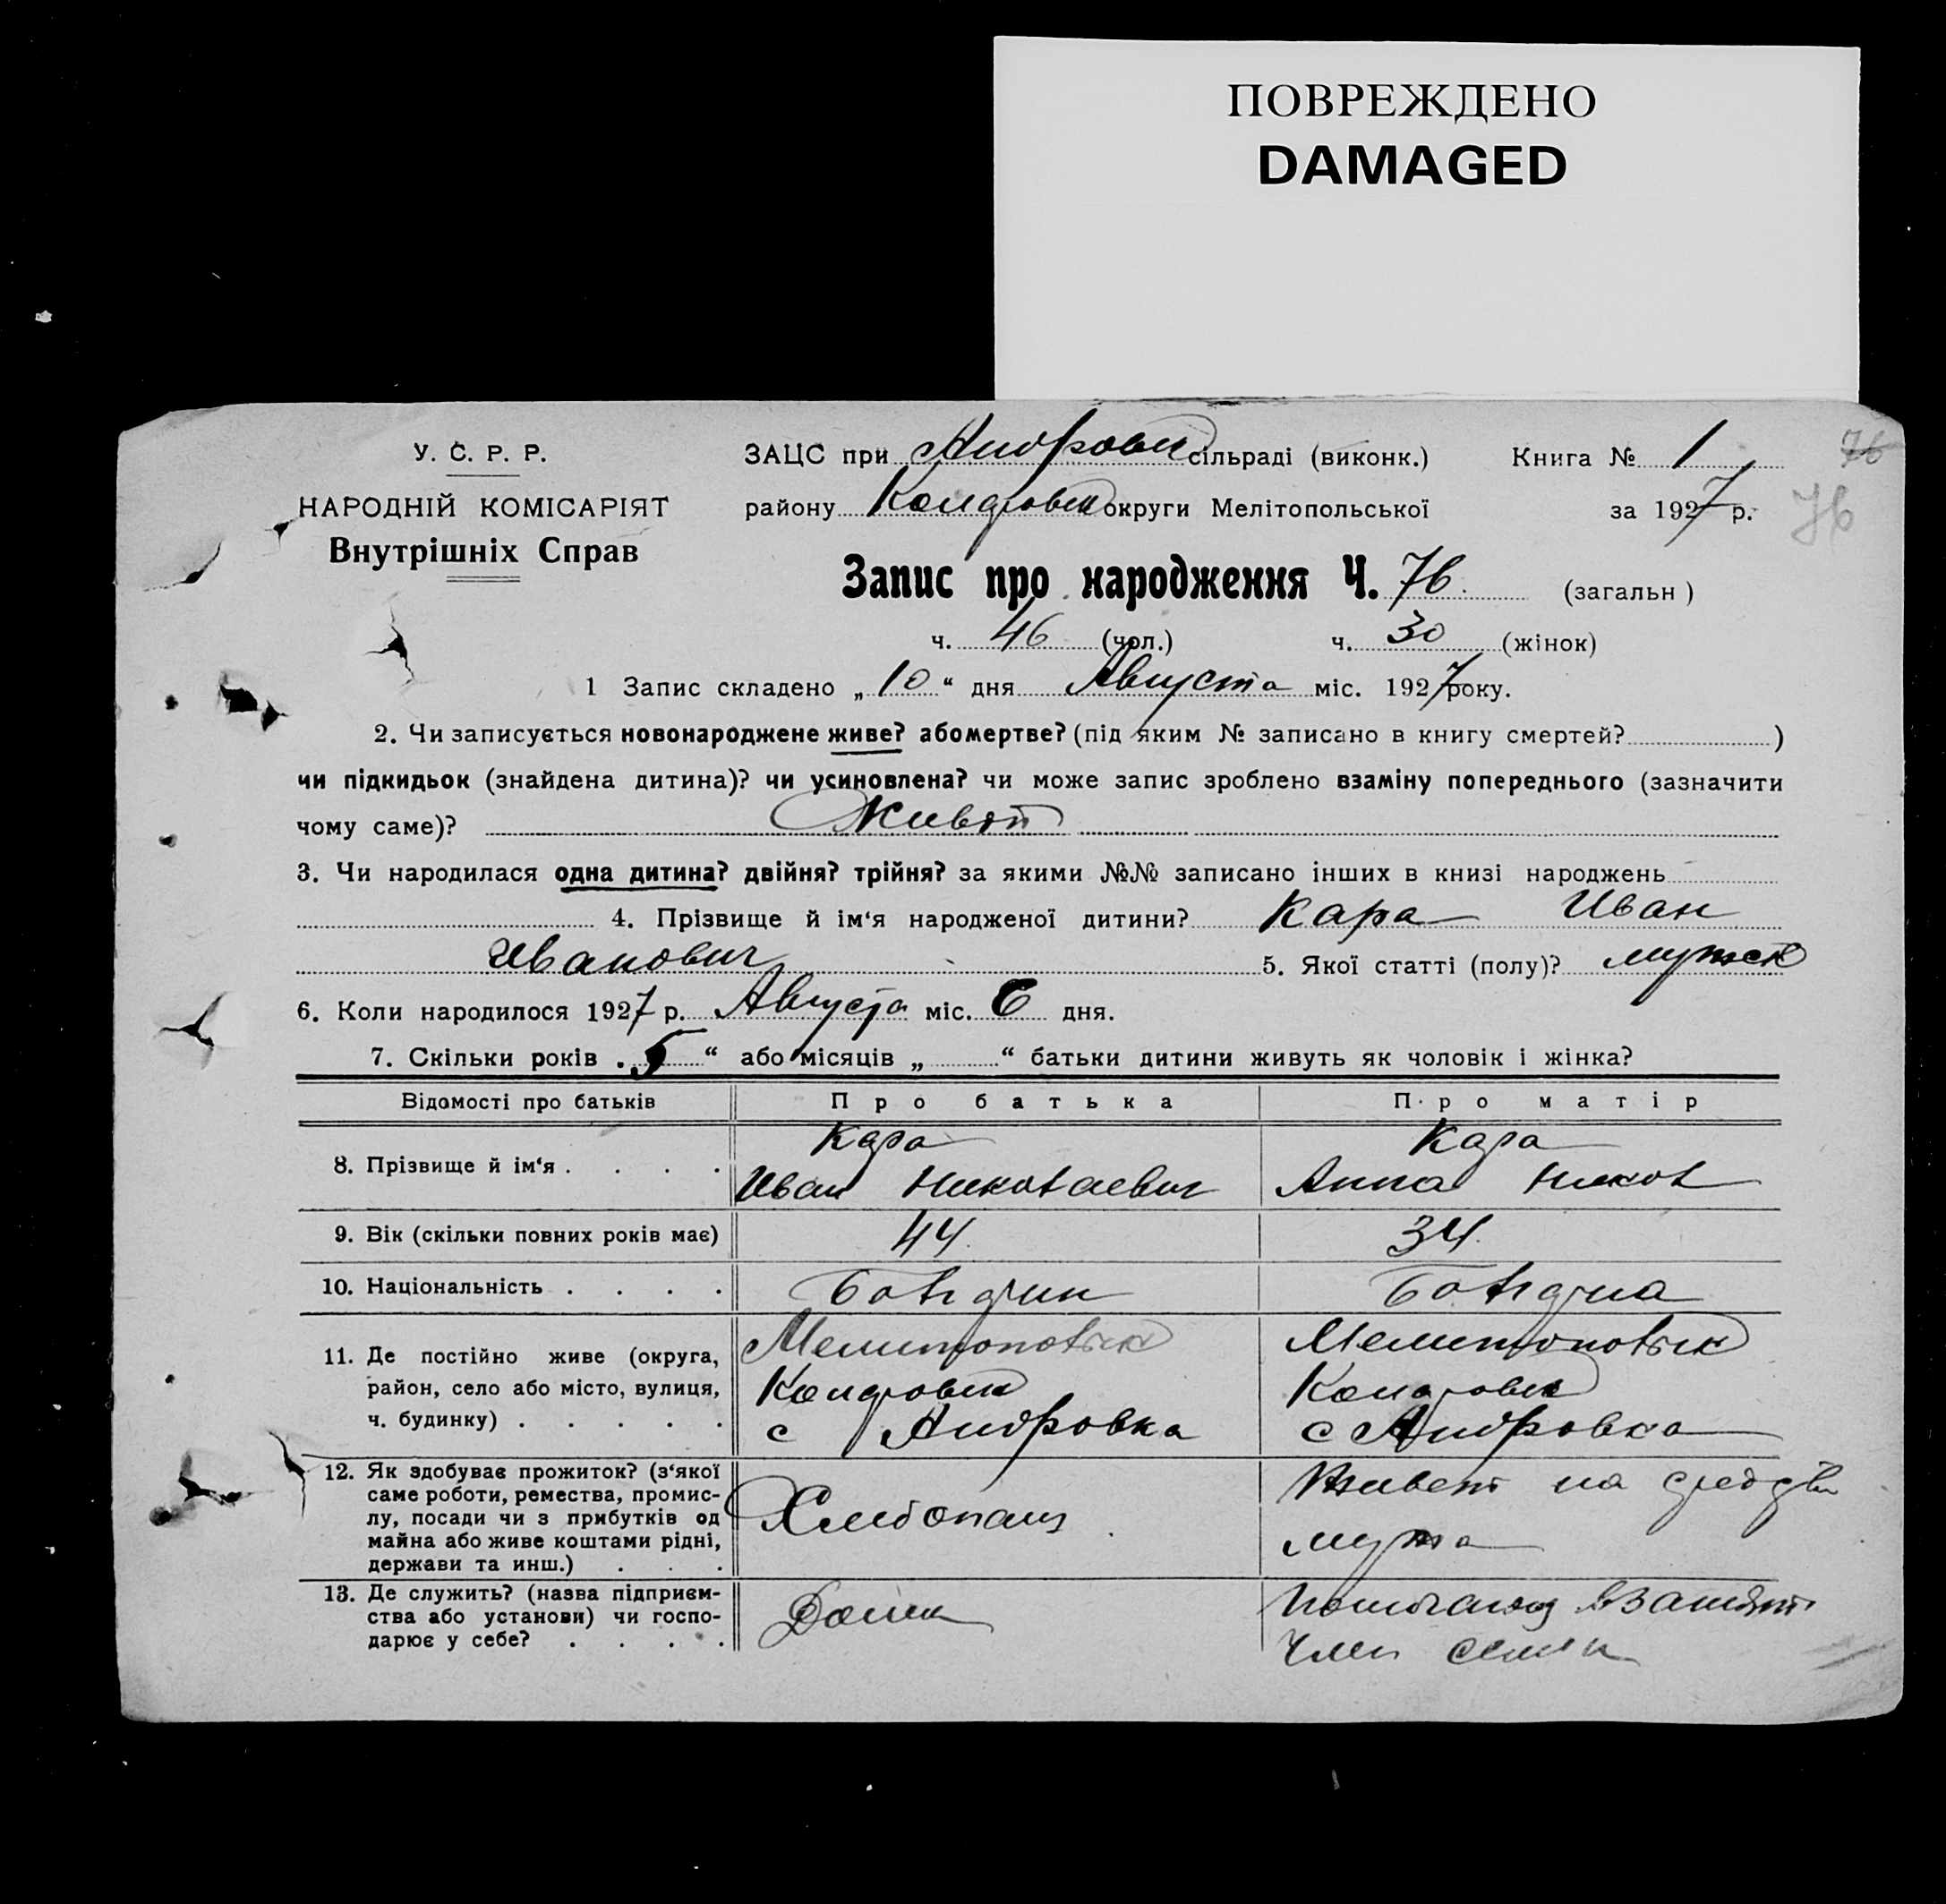 ПОВРЕЖДЕНО
DAMAGED
У. С. Р. Р.
НАРОДНІЙ КОМІСАРІЯТ
Внутрішніх Справ
ЗАЦС при Андровск сільраді (виконк.) Книга № 1 76
району округи Мелітопольської за 1927 р. 76
Запис про народження Ч. 76 (загальн)
ч. 46 (чол.) ч. 30 (жінок)
1 Запис складено „10“ дня Августа міс. 1927 року.
2. Чи записується новонароджене живе? або мертве? (під яким № записано в книгу смертей? )
чи підкидьок (знайдена дитина)? чи усиновлена? чи може запис зроблено взаміну попереднього (зазначити
чому саме)? Живой
3. Чи народилася одна дитина? двійня? трійня? за якими №№ записано інших в книзі народжень
4. Прізвище й ім‘я народженої дитини? Кара Иван
Иванович 5. Якої статті (полу)? мужск
6. Коли народилося 1927 р. Августа міс. 6 дня.
7. Скільки років „5“ або місяців „ “ батьки дитини живуть як чоловік і жінка?
Відомості про батьків Про батька Про матір
8. Прізвище й ім‘я . . . . Кара Иван Николаевич Кара Анна Никол
9. Вік (скільки повних років має) 44 34
10. Національність . . . . Болгарин Болгарка
11. Де постійно живе (округа,
район, село або місто, вулиця,
ч. будинку) . . . . .
Мелитопольск
с Андровка
Мелитопольск
с Андровка
12. Як здобуває прожиток? (з‘якої
саме роботи, ремества, промис-
лу, посади чи з прибутків од
майна або живе коштами рідні,
держави та инш.) . . .
Хлебопаш
Живет на средств
мужа
13. Де служить? (назва підприєм-
ства або установи) чи госпо-
дарює у себе? . . . .
Помогающ в занят
член семьи